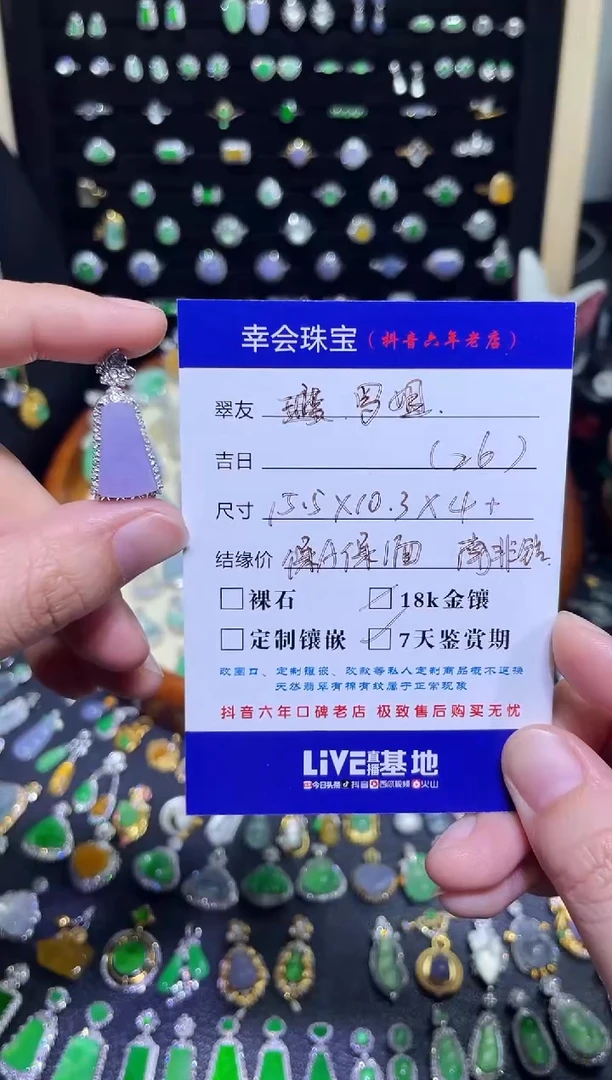 幸会珠宝（抖音六年老店）
翠友 璇 马姐.
吉日 （26）
尺寸 15.5×10.3×4+
结缘价 保A保值 南非钻
裸石 18k金镶
定制镶嵌 7天鉴赏期
改圈口、定制镶嵌、改款等私人定制商品概不退换
天然翡翠有棉有纹属于正常现象
抖音六年口碑老店 极致售后购买无忧
LiVE直播基地
今日头条 抖音 西瓜视频 火山